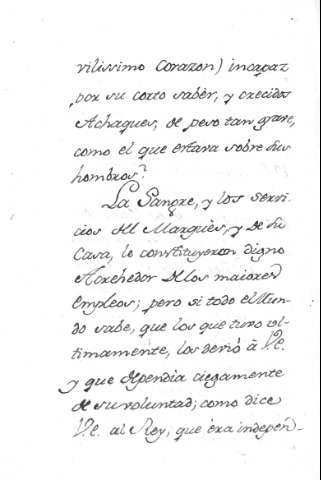 vilissimo Corazon) incapaz
por su corto sabèr, y crecidos
Achaques, de peso tan grave,
como el que estava sobre sus
hombros?
La Sangre, y los servi-
cios del Marquès, y de su
Casa, le constituyeron digno
Acrehedor de los maiores
Empleos; pero si todo el Mun-
do sabe, que los que tuvo ul-
timamente, los deviò à V.e.
y que dependia ciegamente
de su voluntad; como dice
V.e. al Rey, que èra indepen-